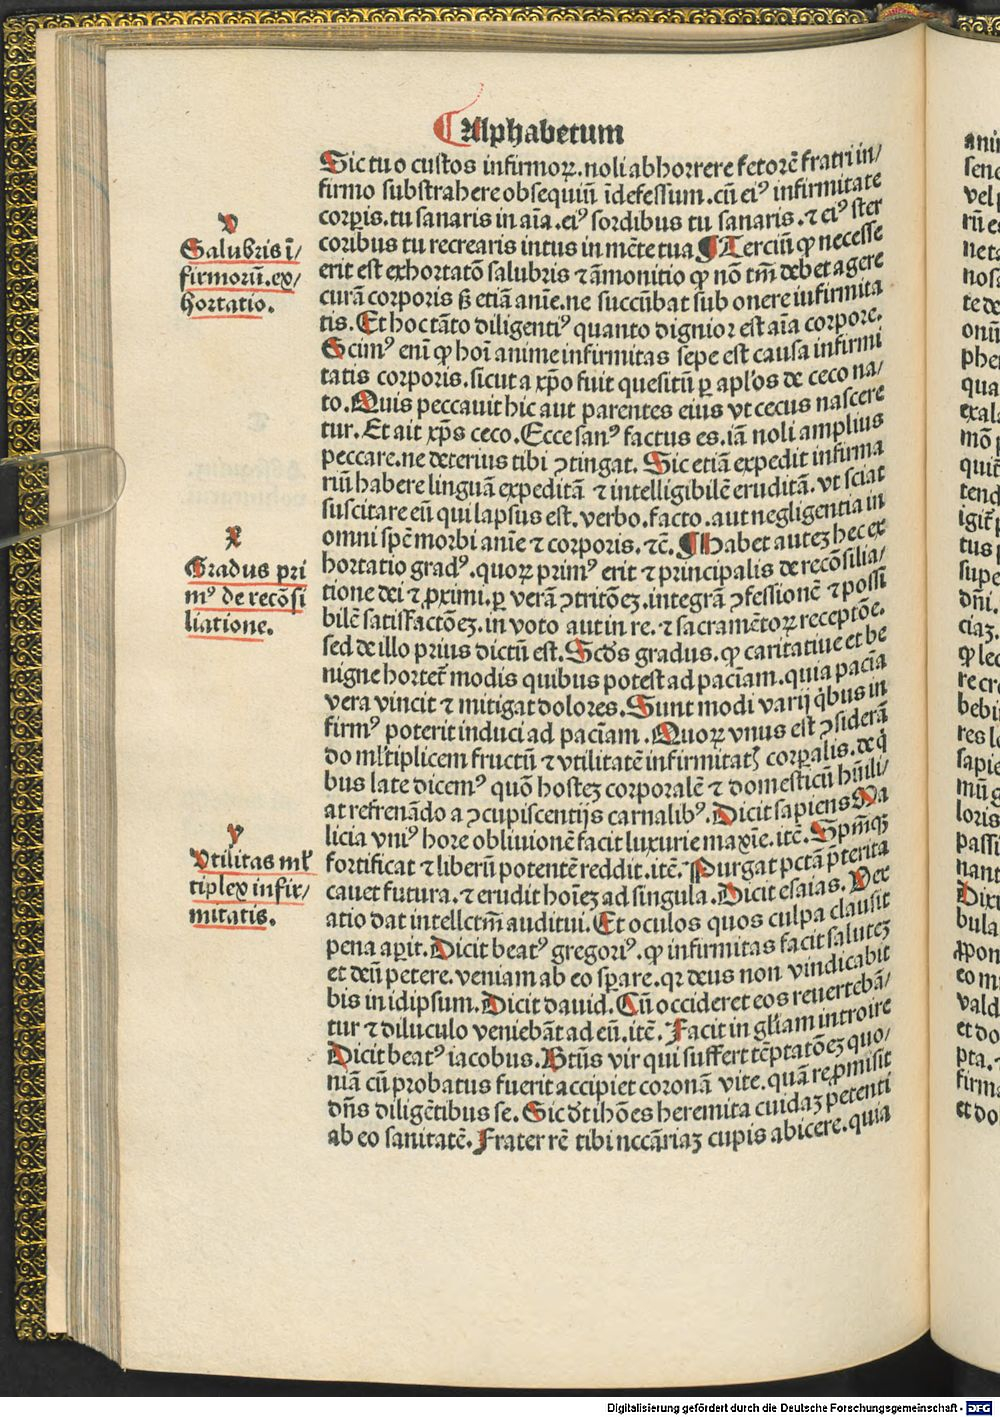 Alphabetum
Sic tu o custos infirmoꝝ. noli abhorrere fetorē fratri in/
firmo substrahere obsequiū īdefessum. cū eiꝰ infirmitate
corꝑis. tu sanaris in aīa. eiꝰ sordibus tu sanaris. ⁊ eiꝰ ster
coribus tu recrearis intus in mēte tua ¶ Terciū ꝙ necesse
erit est exhortatō salubris ⁊ āmonitio ꝙ nō tm̄ debet agere
curā corporis ß etiā anīe. ne succūbat sub onere infirmita
tis. Et hoc tāto diligentiꝰ quanto dignior est aīa corpore.
Scimꝰ enī ꝙ hoī anime infirmitas sepe est causa infirmi
tatis corporis. sicut a xp̄o fuit quesitū ꝑ apl'os de ceco na/
to. Quis peccauit hic aut parentes eius vt cecus nascere
tur. Et ait xp̄s ceco. Ecce sanꝰ factus es. iā noli amplius
peccare. ne deterius tibi ꝯtingat. Sic etiā expedit infirma
riū habere linguā expeditā ⁊ intelligibilē eruditā. vt sciat
suscitare eū qui lapsus est. verbo. facto. aut negligentia in
omni spē morbi anīe ⁊ corporis. ⁊c̄. ¶ Habet auteꝫ hec ex
hortatio gradꝰ. quoꝝ primꝰ erit ⁊ principalis de recōsilia/
tione dei ⁊ ꝓximi. ꝑ verā ꝯtritōeꝫ. integrā ꝯfessionē ⁊ possi
bilē satisfactōeꝫ. in voto aut in re. ⁊ sacramētoꝝ receptōe.
sed de illo prius dictū est. Scds̄ gradus. ꝙ caritatiue et be
nigne hortet̄ modis quibus potest ad paciam. quia pacīa
vera vincit ⁊ mitigat dolores. Sunt modi varij q̇bus in
firmꝰ poterit induci ad pacīam. Quoꝝ vnus est ꝯsiderā
do ml'tiplicem fructū ⁊ vtilitatē infirmitatꝭ corꝑalis. de q̇
bus late dicemꝰ quō hosteꝫ corporalē ⁊ domesticū hūili/
at refrenādo a ꝯcupiscentijs carnalibꝰ. Dicit sapiens Ma
licia vniꝰ hore obliuionē facit luxurie maxīe. itē. Spm̄qꝫ
fortificat ⁊ liberū potentē reddit. itē. Purgat pctā p̄terita
cauet futura. ⁊ erudit hoīeꝫ ad singula. Dicit esaias. Vex
atio dat intellctm̄ auditui. Et oculos quos culpa clausit
pena aꝑit. Dicit beatꝰ gregoriꝰ. ꝙ infirmitas facit saluteꝫ
et deū petere. veniam ab eo sꝑare. qꝛ deus non vindicabit
bis in idipsum. Dicit dauid. Cū occideret eos reuertebā/
tur ⁊ diluculo veniebāt ad eū. itē. Facit in gl'iam introire
Dicit beatꝰ iacobus. Btūs vir qui suffert tēptatōeꝫ quo/
niā cū probatus fuerit accipiet coronā vite. quā reꝓmisit
dn̄s diligētibus se. Sic dt ihōes heremita cuidaꝫ petenti
ab eo sanitatē. Frater rē tibi nccāriaꝫ cupis abicere. quia
v
Salubris ī/
firmorū. ex/
hortatio.
x
Gradus pri
mꝰ de recōsi
liatione.
y
Vtilitas ml'
tiplex infir/
mitatis.
Digitalisierung gefördert durch die Deutsche Forschungsgemeinschaft - DFG